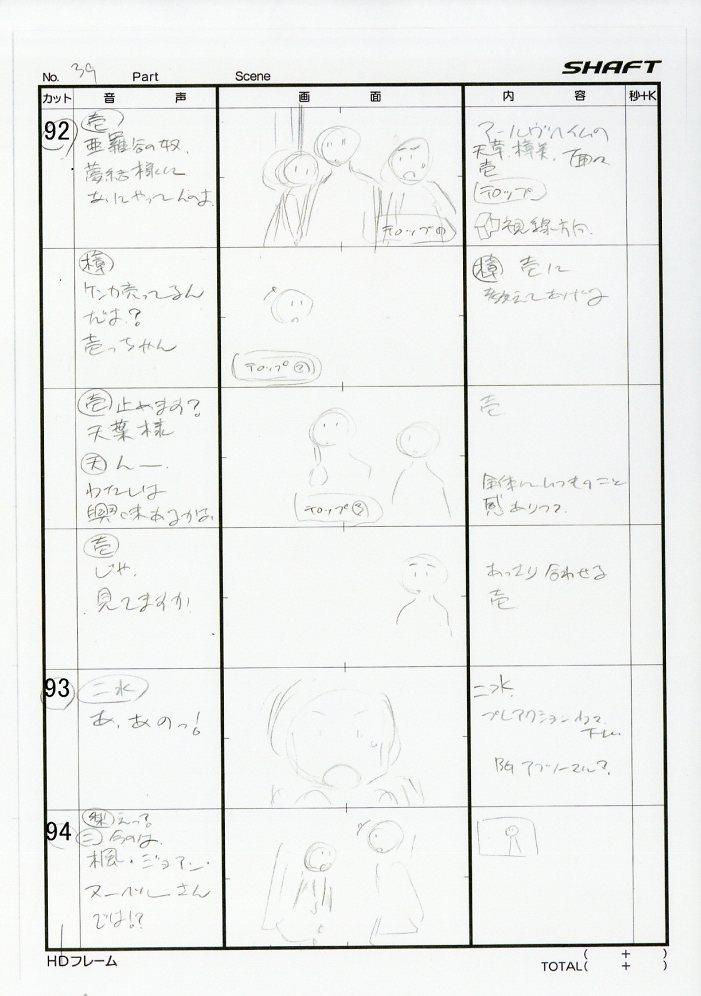 SHAFT
No. 39 Part Scene
カット 音声 画面 内容 秒+K
92
壱
亜羅椰の奴、
夢結様に
なにやってんのよ
テロップ①
アールヴヘイムの
天葉、樟美、
壱
テロップ
視線方向
樟
ケンカ売ってるん
だよ?
壱っちゃん
テロップ②
樟 壱に
教えてあげる
壱 止めます?
天葉様
天 んー
わたしは
興味あるかな
テロップ③
壱
全体にいつものこと
感ありつつ
壱
じゃ、
見てますか
あっさり合わせる
壱
93
二水
あ、あのっ!
二水
プレアクション
下さい
BG アブノーマル?
94
梨 えっ?
二 今のは、
楓・ジョアン・
ヌーベルさん
では!?
HDフレーム
TOTAL( + )
( + )